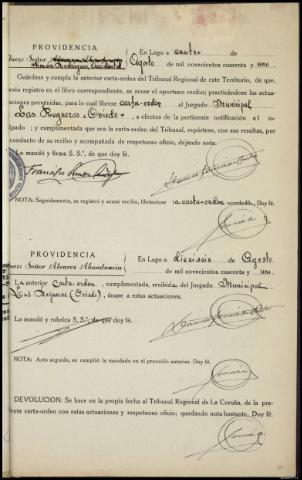 PROVIDENCIA
En Lugo a cuatro de
Juez: Señor
Simón Rodríguez Accidental
Agosto
de mil novecientos cuarenta y uno.
Guárdese y cumpla la anterior carta-orden del Tribunal Regional de este Territorio, de que,
previo registro en el libro correspondiente, se acuse el oportuno recibo; practicándose las
actuaciones prevenidas, para lo cual líbrese carta-orden al Juzgado Municipal
Las Regueras - Oviedo -, a efectos de la pertinente notificación al in-
; y cumplimentada que sea la carta-orden del Tribunal, repórtese, con sus resultas, por
conducto de su recibo y acompañada de respetuoso oficio, dejando nota.
Lo mandó y firma S. S.ª, de que doy fé.
NOTA: Seguidamente, se registró y acusó recibo, librándose la carta-orden acordada. Doy fé.
PROVIDENCIA
En Lugo a dieciséis de Agosto
Juez: Señor Alvarez Abundancia
de mil novecientos cuarenta y uno.
La anterior carta-orden, cumplimentada, recibida del Juzgado Municipal
Las Regueras (Oviedo), únase a estas actuaciones.
Lo mandó y rubrica S. S.ª de que doy fé.
NOTA: Acto seguido, se cumplió lo mandado en el proveído anterior. Doy fé.
DEVOLUCION: Se hace en la propia fecha al Tribunal Regional de La Coruña, de la pre-
sente carta-orden con estas actuaciones y respetuoso oficio; quedando nota bastante. Doy fé.